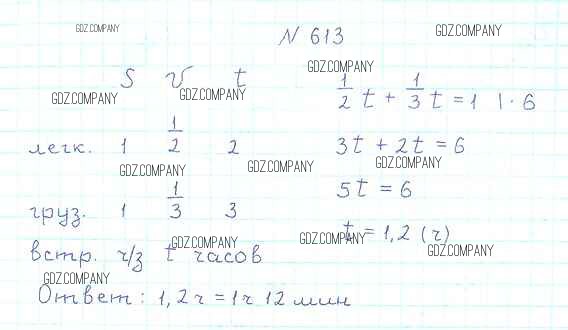 GDZ.COMPANY
N 613
GDZ.COMPANY
S V t
GDZ.COMPANY
GDZ.COMPANY
GDZ.COMPANY
1/2 t + 1/3 t = 1 | · 6
легк. 1 1/2 2
3t + 2t = 6
GDZ.COMPANY
GDZ.COMPANY
GDZ.COMPANY
груз. 1 1/3 3
5t = 6
GDZ.COMPANY
GDZ.COMPANY
t = 1,2 (ч)
GDZ.COMPANY
встр. ч/з t часов
GDZ.COMPANY
Ответ: 1,2ч = 1ч 12 мин